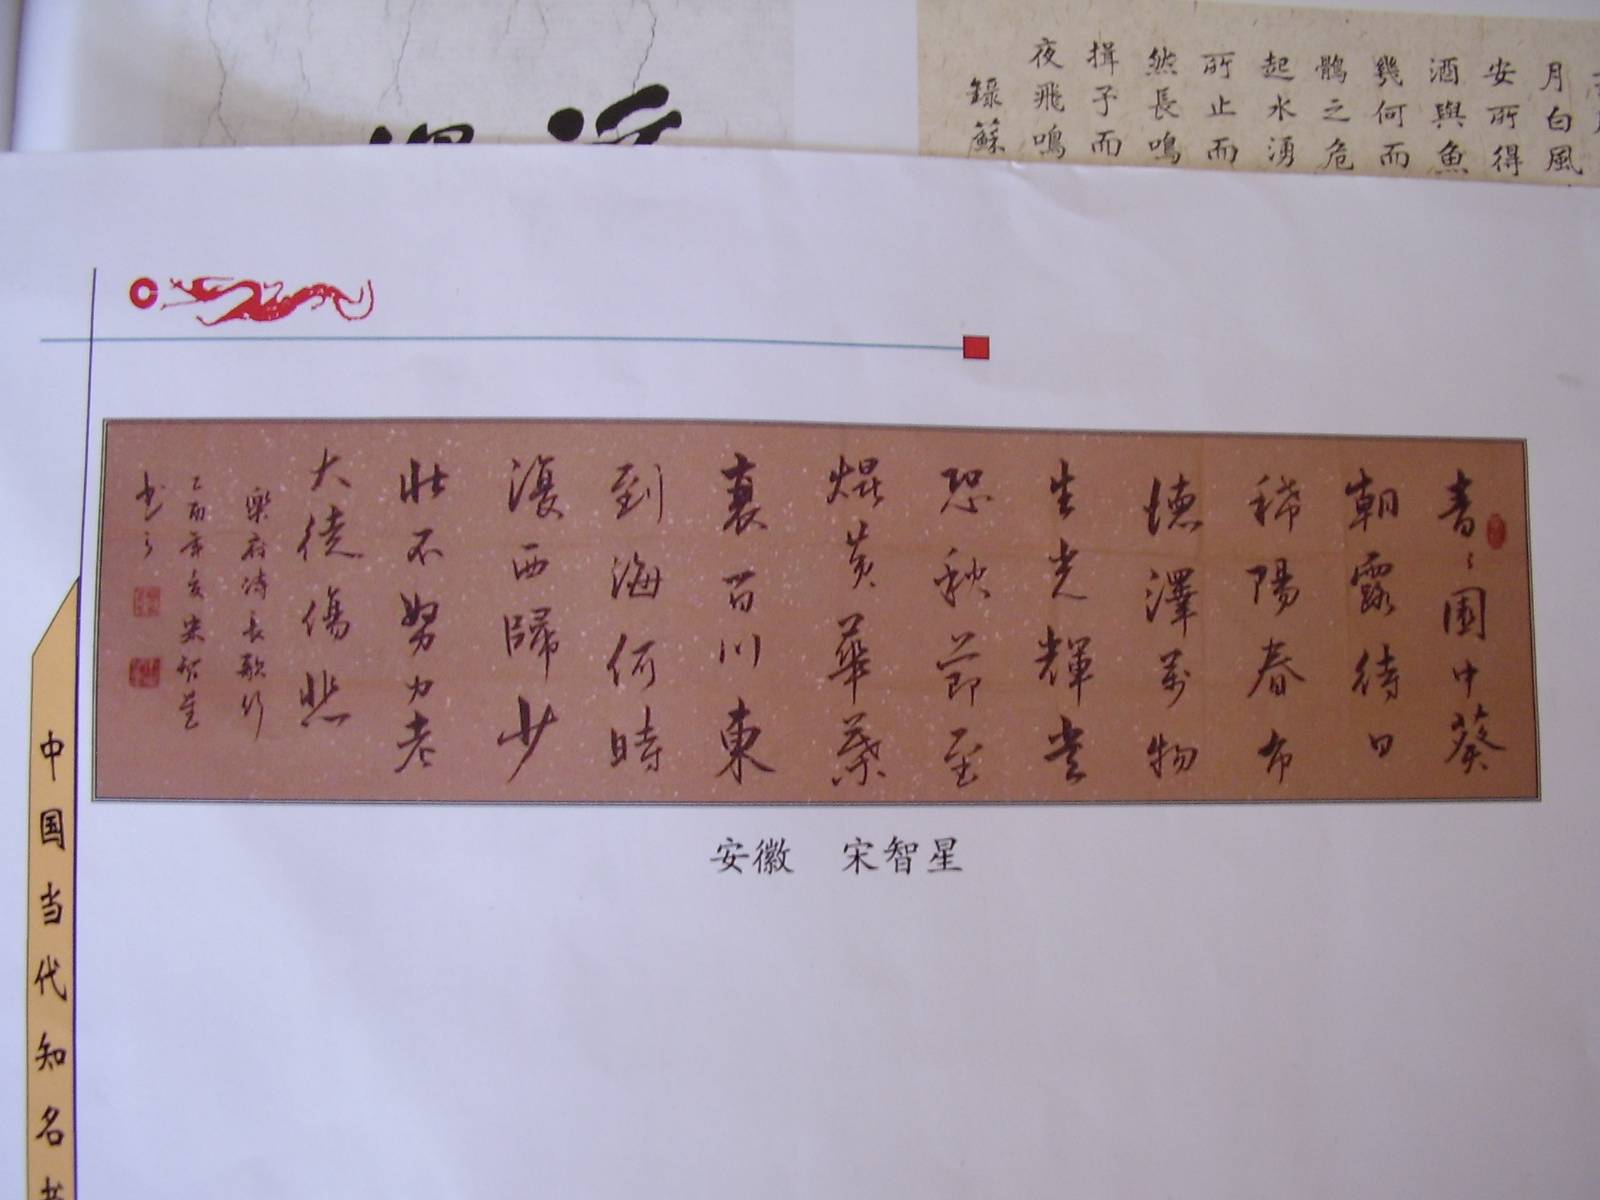 月白風
安所得
酒與魚
幾何而
鶻之危
起水湧
所止而
然長鳴
揖予而
夜飛鳴
錄蘇
青〻園中葵
朝露待日
稀陽春布
德澤萬物
生光輝常
恐秋節至
焜黃華葉
衰百川東
到海何時
復西歸少
壯不努力老
大徒傷悲
樂府詩長歌行
乙酉年夏宋智星
书之
安徽 宋智星
中国当代知名书